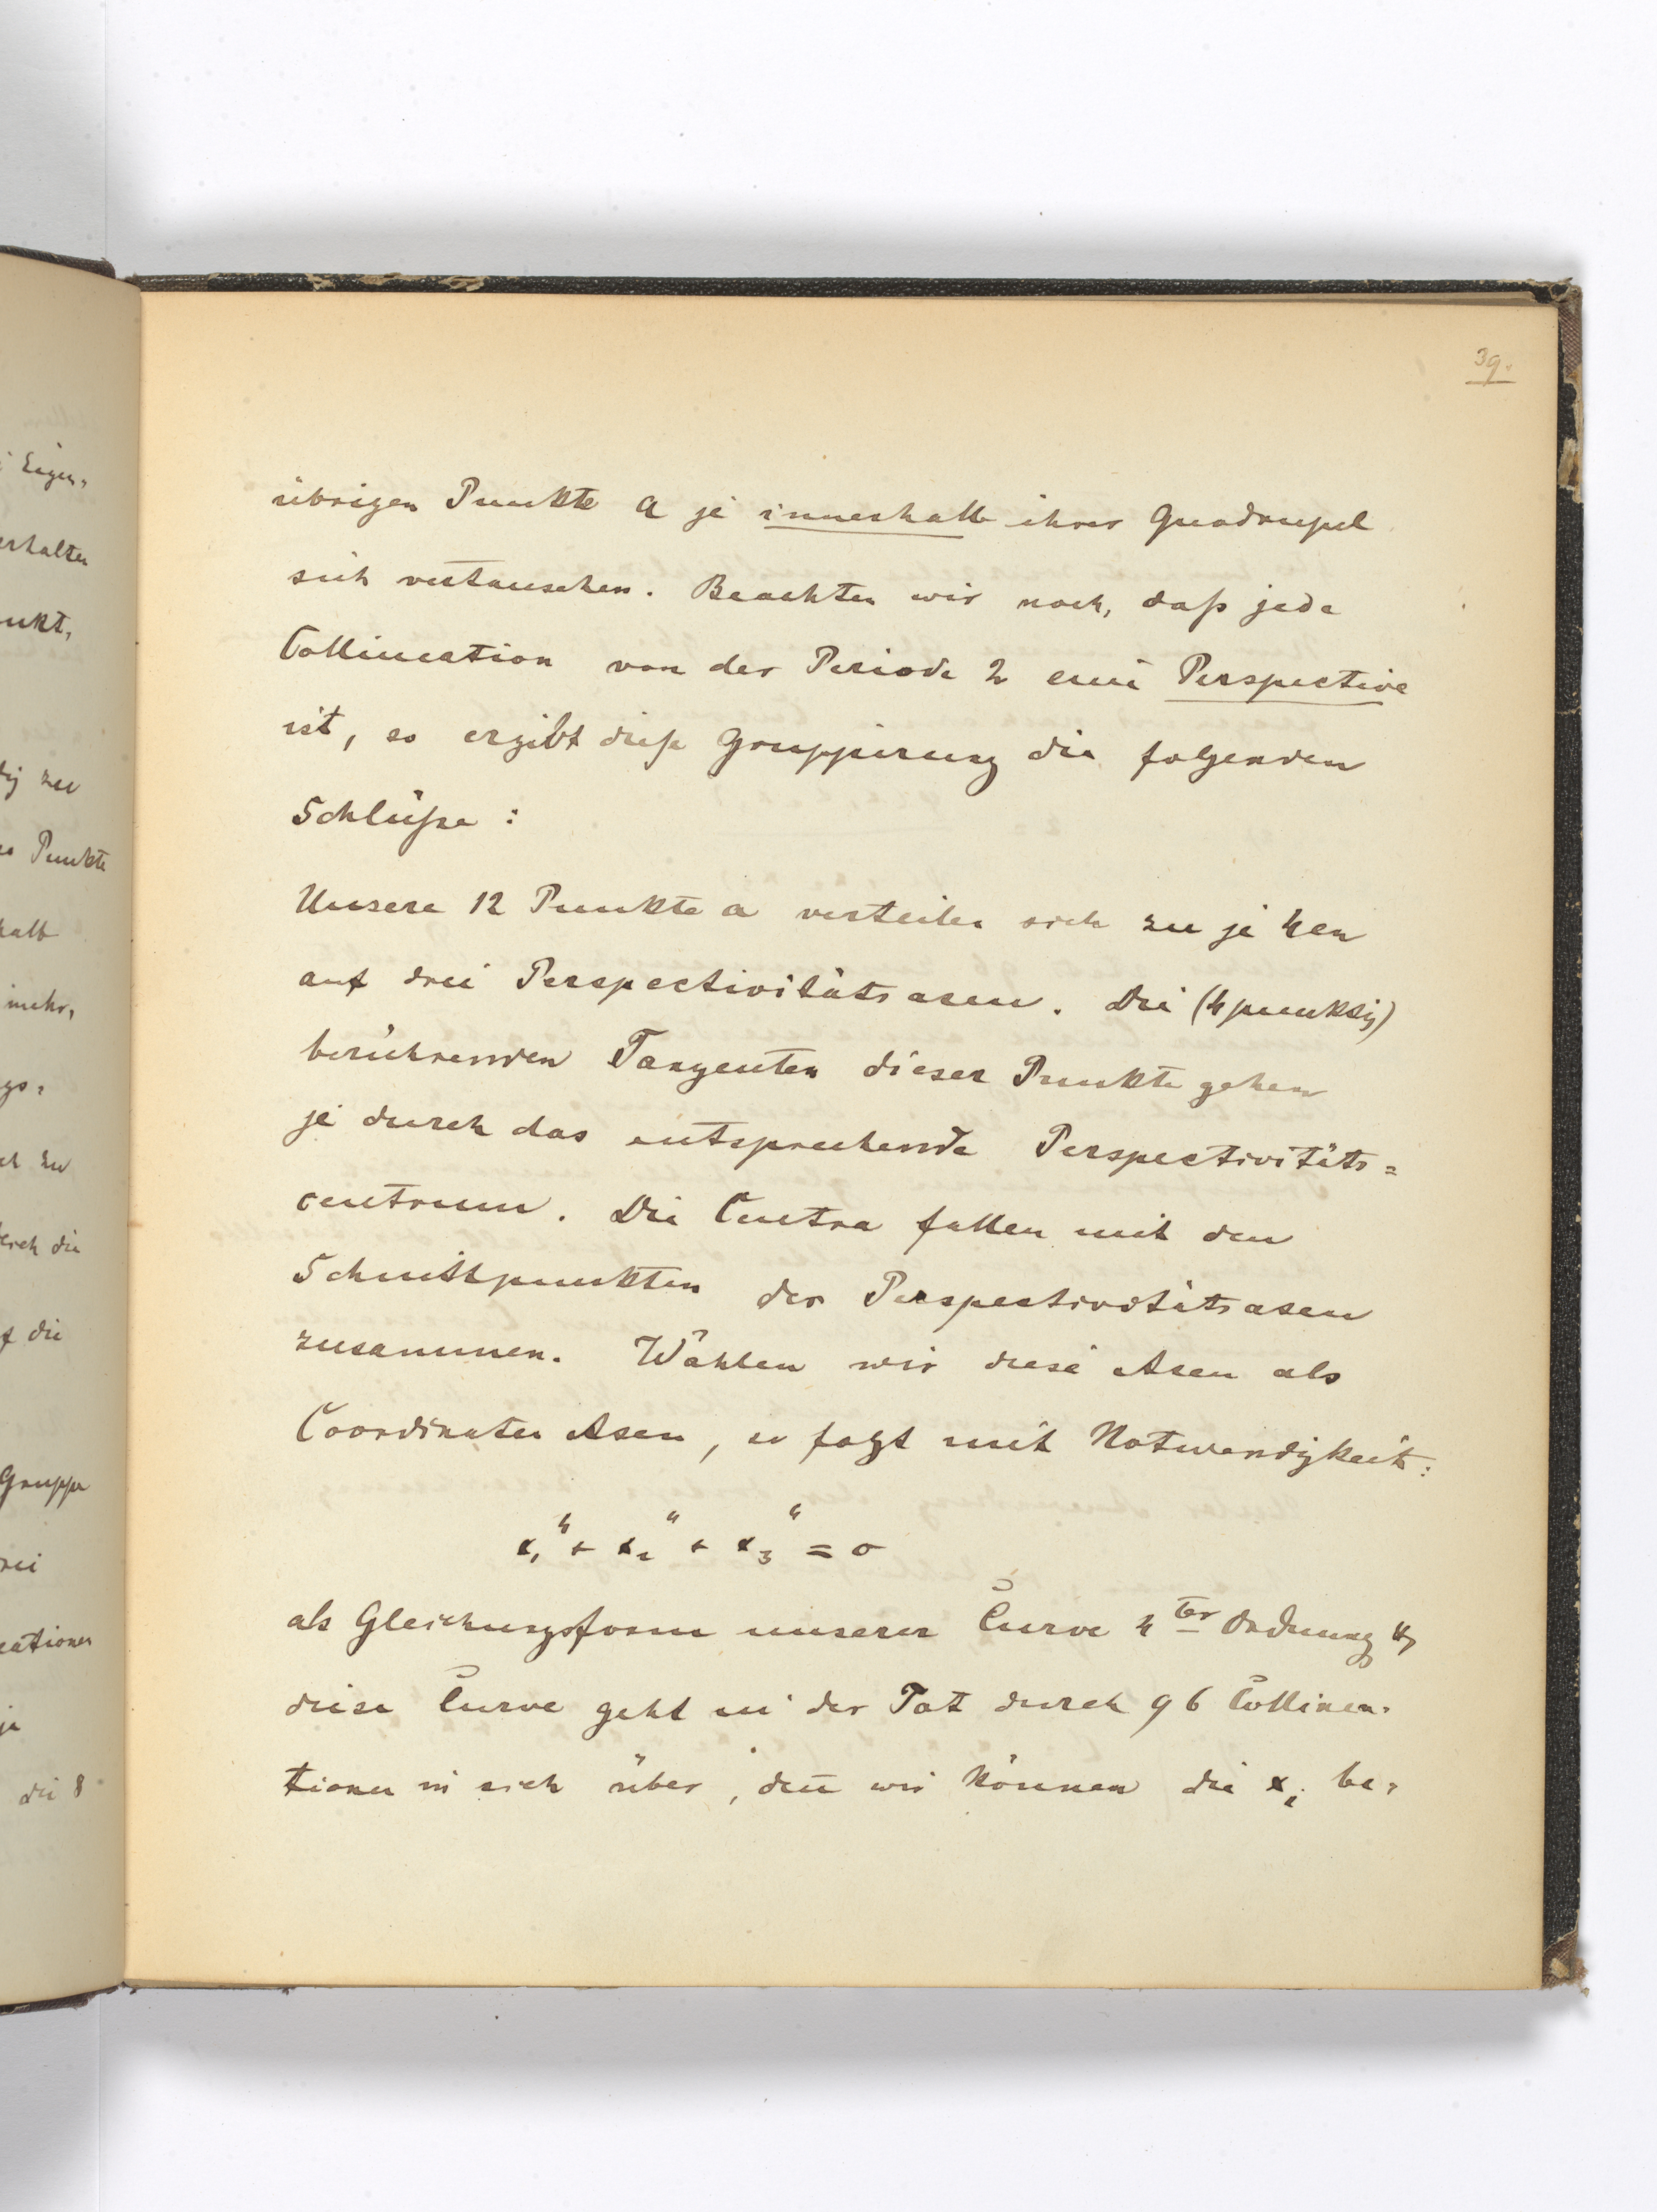 39.
übrigen Punkte a je innerhalb ihrer Quadrupel
sich vertauschen. Beachten wir noch, daß jede
Collineation von der Periode 2 eine Perspective
ist, so ergibt diese Gruppirung die folgenden
Schlüße:
Unsere 12 Punkte a verteilen sich zu je 4en
auf drei Perspectivitätsaxen. Die (4punktig)
berührenden Tangenten dieser Punkte gehen
je durch das entsprechende Perspectivitäts=
centrum. Die Centra fallen mit den
Schnittpunkten der Perspectivitätsaxen
zusammen. Wählen wir diese Axen als
Coordinaten Axen, so folgt mit Notwendigkeit:
x₁⁴ + x₂⁴ + x₃⁴ = 0
als Gleichungsform unserer Curve 4ter Ordnung u.
diese Curve geht in der Tat durch 96 Collinea-
tionen in sich über, den̄ wir können die xᵢ be-
Eigen-
erhalten
unkt,
zu
Punkte
halb
mehr,
zu
durch die
f die
Gruppe
rei
eationen
je
die 8